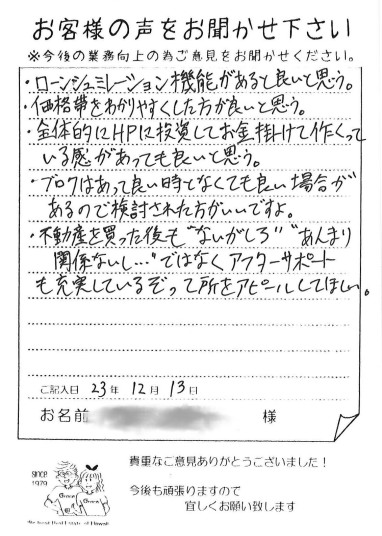 お客様の声をお聞かせ下さい
※今後の業務向上の為ご意見をお聞かせください。
・ローンシュミレーション機能があると良いと思う。
・価格帯をわかりやすくした方が良いと思う。
・全体的にHPに投資してお金掛けて作くって
いる感があっても良いと思う。
・ブログはあって良い時となくても良い場合が
あるので検討された方がいいですよ。
・不動産を買った後も"ないがしろ""あんまり
関係ないし…"ではなくアフターサポート
も充実しているぞって所をアピールしてほしい。
ご記入日 23年 12月 13日
お名前 様
貴重なご意見ありがとうございました！
今後も頑張りますので
宜しくお願い致します
SINCE
1979